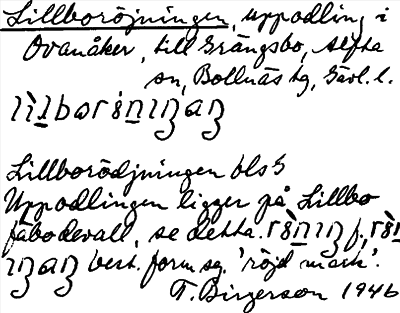 Lillboröjningen, uppodling i
Ovanåker, till Grängsbo, Alfta
sn, Bollnäs tg, Gävl. l.
Lillborödjningen bls 5
Uppodlingen ligger på Lillbo
fäbodevall, se detta. f.,
best. form sg. 'röjd mark'.
T. Birgerson 1946